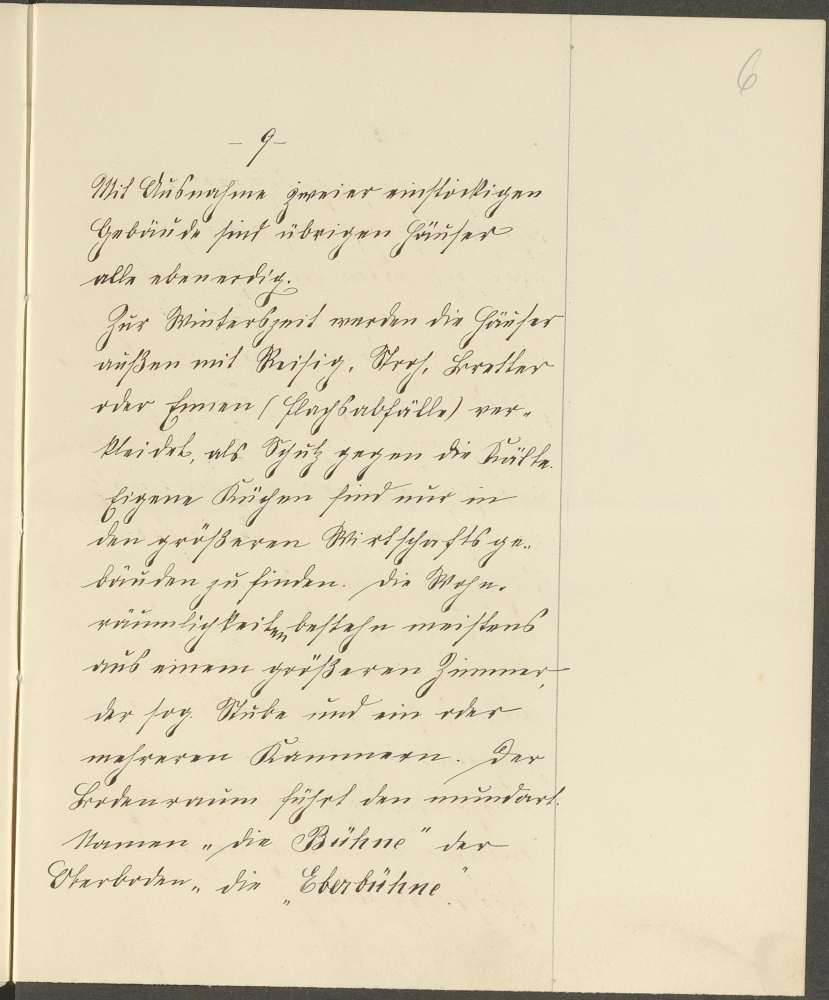 6
- 9 -
Mit Ausnahme zweier einstöckigen
Gebäude sind übrigen Häuser
alle ebenerdig.
Zur Winterszeit werden die Häuser
außen mit Reisig, Stroh, Bretter
oder Ennen (Flachsabfälle) ver-
kleidet, als Schutz gegen die Kälte.
Eigene Küchen sind nur in
den größeren Wirtschaftsge-
bäuden zu finden. Die Wohn-
räumlichkeiten bestehn meistens
aus einem größeren Zimmer,
der sog. Stube und ein oder
mehreren Kammern. Der
Bodenraum führt den mundart.
Namen „die Bühne" der
Oberboden „die „Eberbühne".